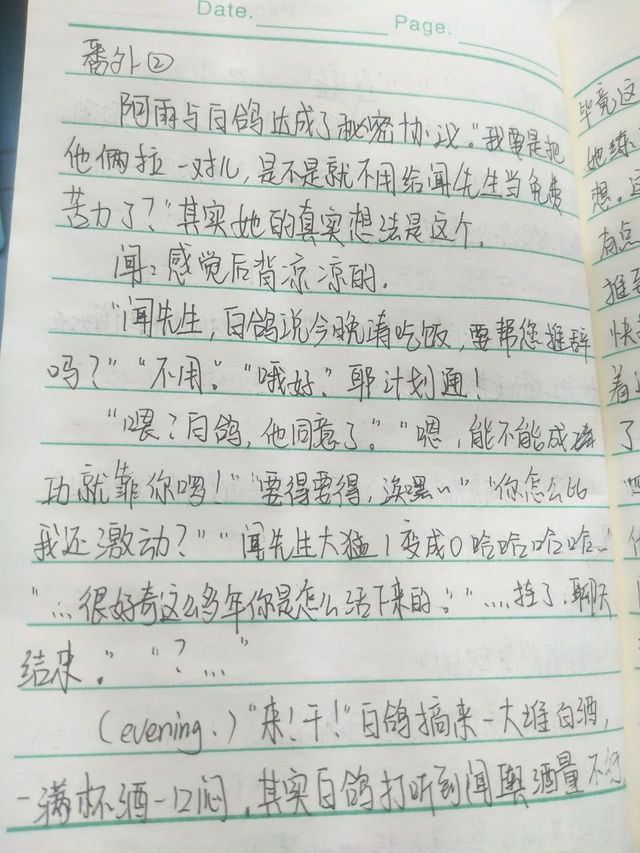 Date.
Page.
番外②
阿雨与白鸽达成了秘密协议。"我要是把
他俩拉一对儿，是不是就不用给闻先生当免费
苦力了？"其实她的真实想法是这个。
闻：感觉后背凉凉的。
"闻先生，白鸽说今晚请吃饭，要帮您推辞
吗？""不用。""哦好。"耶计划通！
"喂？白鸽，他同意了。""嗯，能不能成
功就靠你啰！""要得要得，嘿~""你怎么比
我还激动？""闻先生大猛1变成0哈哈哈哈~"
"…很好奇这么多年你是怎么活下来的。""…挂了，聊天
结束。""？…"
(evening.)"来！干！"白鸽搞来一大堆白酒，
一满杯酒一口闷，其实白鸽打听到闻舆酒量不行
毕竟这
她练
想。
有点
推
快
着
了